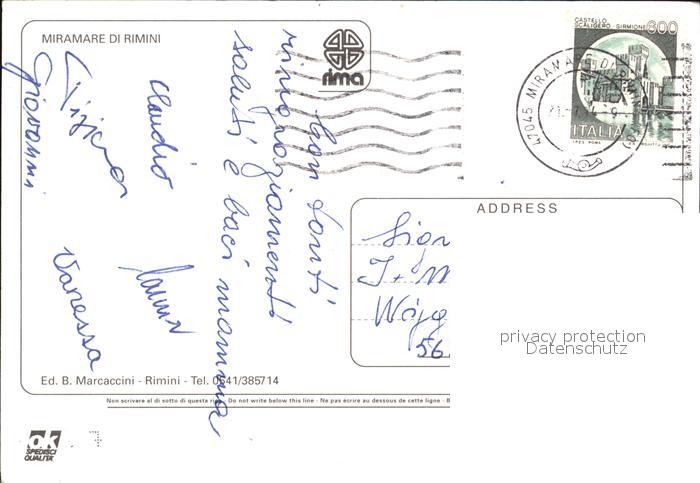 MIRAMARE DI RIMINI
rima
CASTELLO
SCALIGERO - SIRMIONE
600
ITALIA
47045 MIRAMARE DI RIMINI (FO)
Con tanti
ringraziamenti
saluti e baci mamma
Claudio
Giovanni
Vanessa
ADDRESS
56
privacy protection
Datenschutz
Ed. B. Marcaccini - Rimini - Tel. 0541/385714
Non scrivere al di sotto di questa riga - Do not write below this line - Ne pas écrire au dessous de cette ligne - B
ok
SPEDISCI
QUALITÀ